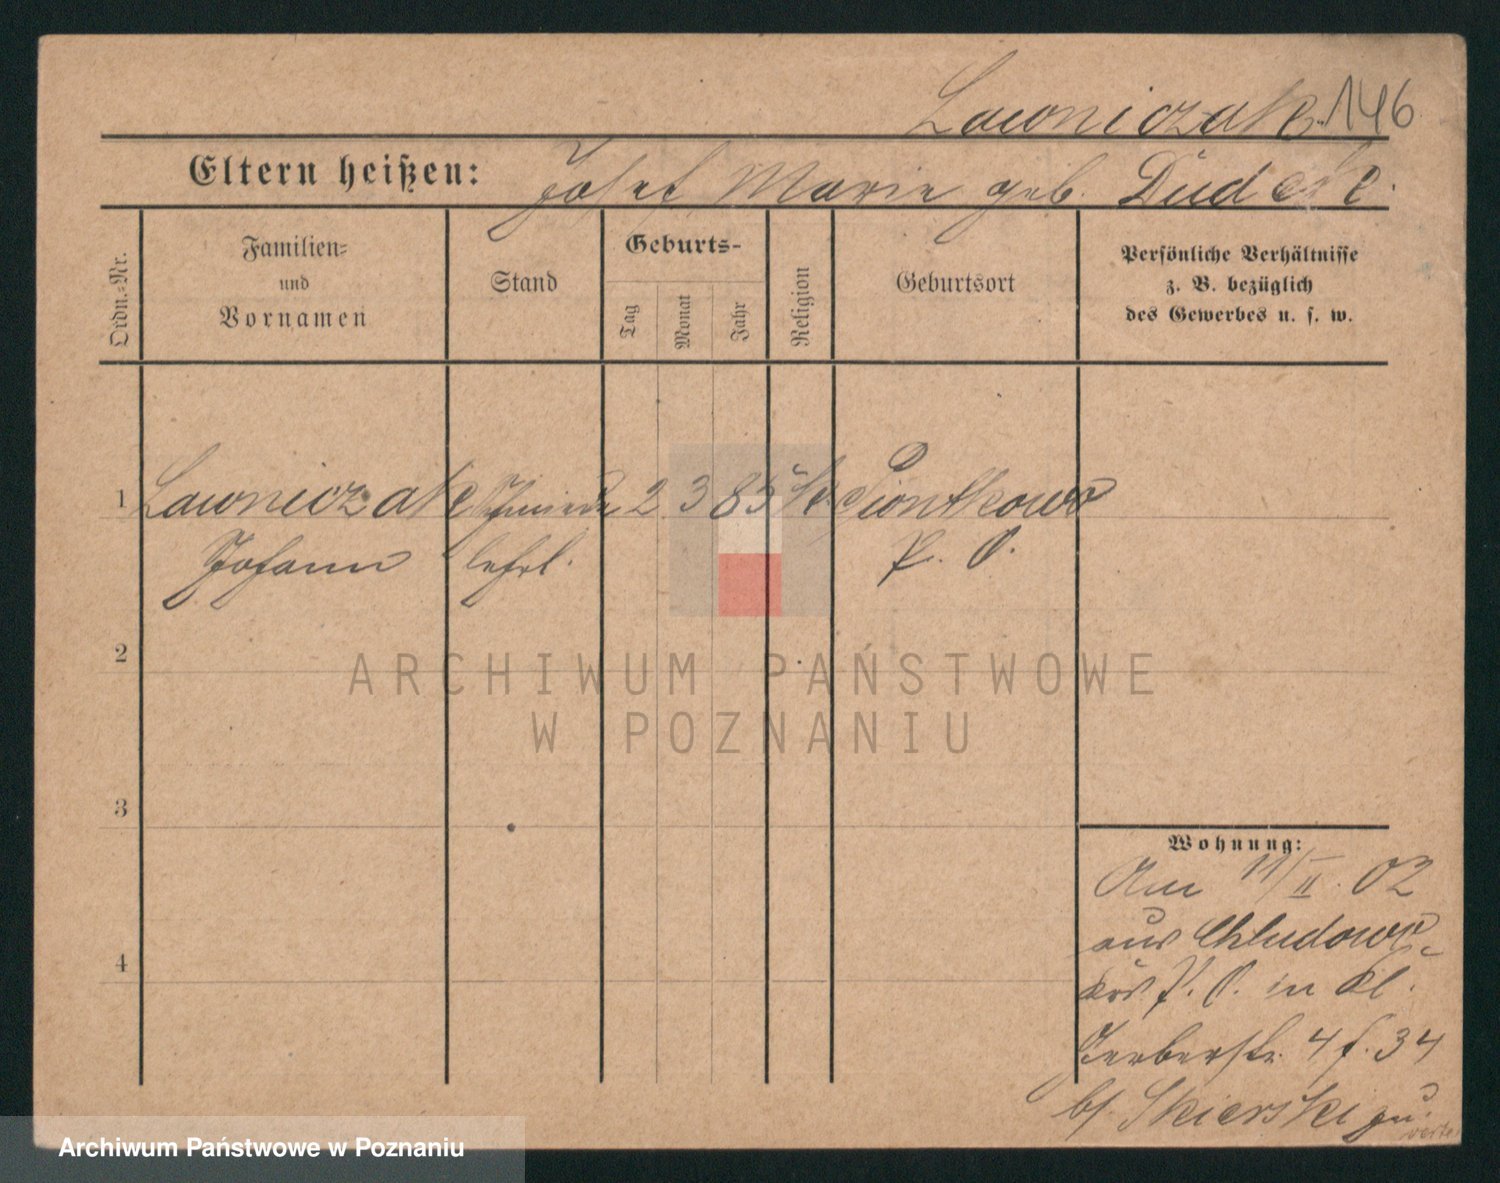 Lawniczak 146
Eltern heißen: Josef Marie geb. Dudek
Ordn.-Nr.
Familien-
und
Vornamen
Stand
Geburts-
Tag
Monat
Jahr
Religion
Geburtsort
Persönliche Verhältnisse
z. B. bezüglich
des Gewerbes u. s. w.
1 Lawniczak Schmiede 2 3 85 k. Piontkowo
Johann lehrl. P. O.
2
3
4
Wohnung:
Am 11/II. 02
aus Chludowo
Krs. P. O. in Kl.
Gerberstr. 4 f. 34
bei Skierski zu.
ARCHIWUM PAŃSTWOWE
W POZNANIU
Archiwum Państwowe w Poznaniu